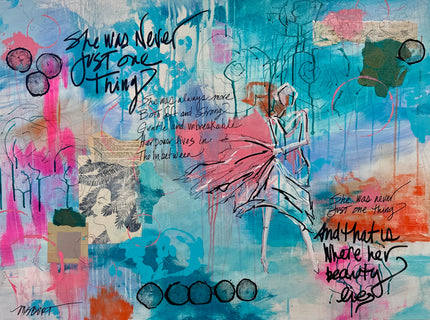 She was Never
Just one
Thing
She was always more
Both soft and strong
Gentle and unbreakable
Her power lives in
The In between
She was never
Just one thing
And that is
Where her
beauty
lives